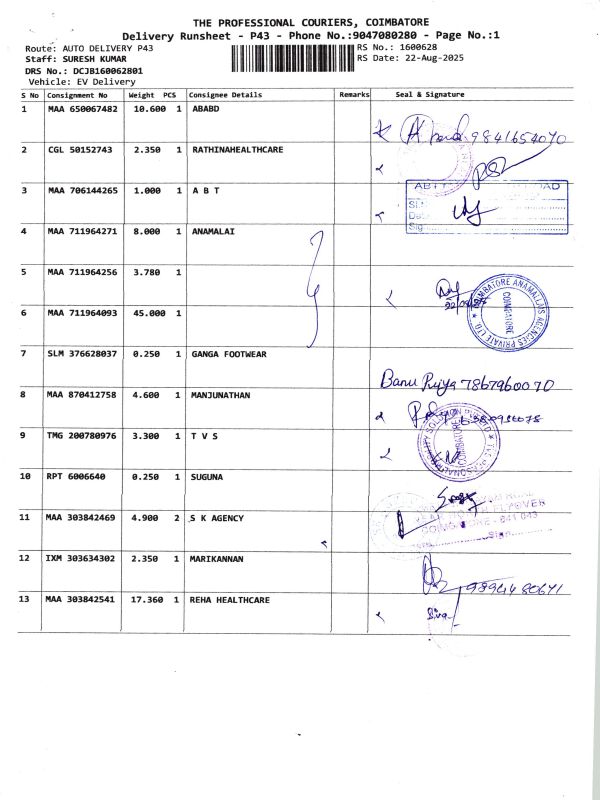 THE PROFESSIONAL COURIERS, COIMBATORE
Delivery Runsheet - P43 - Phone No.:9047080280 - Page No.:1
Route: AUTO DELIVERY P43 RS No.: 1600628
Staff: SURESH KUMAR RS Date: 22-Aug-2025
DRS No.: DCJB160062801
Vehicle: EV Delivery
S No Consignment No Weight PCS Consignee Details Remarks Seal & Signature
1 MAA 650067482 10.600 1 ABABD
9841654070
2 CGL 50152743 2.350 1 RATHINAHEALTHCARE
3 MAA 706144265 1.000 1 A B T
ABT
4 MAA 711964271 8.000 1 ANAMALAI
5 MAA 711964256 3.780 1
COIMBATORE ANAMALLAIS AGENCIES PRIVATE LTD.
COIMBATORE
6 MAA 711964093 45.000 1
7 SLM 376628037 0.250 1 GANGA FOOTWEAR
Banu Priya 7867960070
8 MAA 870412758 4.600 1 MANJUNATHAN
9 TMG 200780976 3.300 1 T V S
COIMBATORE
10 RPT 6006640 0.250 1 SUGUNA
11 MAA 303842469 4.900 2 S K AGENCY
FLYOVER
12 IXM 303634302 2.350 1 MARIKANNAN
9894480671
13 MAA 303842541 17.360 1 REHA HEALTHCARE
Siva